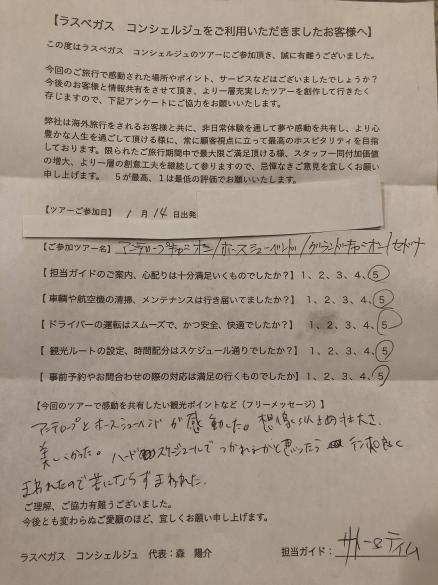 【ラスベガス　コンシェルジュをご利用いただきましたお客様へ】
この度はラスベガス　コンシェルジュのツアーにご参加頂き、誠に有難うございました。
今回のご旅行で感動された場所やポイント、サービスなどはございましたでしょうか？
今後のお客様と情報共有をさせて頂き、より一層充実したツアーを創作して行きたく
存じますので、下記アンケートにご協力をお願いいたします。
弊社は海外旅行をされるお客様と共に、非日常体験を通して夢や感動を共有し、より心
豊かな人生を過ごして頂ける様に、常に顧客視点に立って最高のホスピタリティを目指
しております。限られたご旅行期間中で最大限ご満足頂ける様、スタッフ一同付加価値
の増大、より一層の創意工夫を継続して参りますので、忌憚なきご意見を宜しくお願い
申し上げます。　５が最高、１は最低の評価でお願いいたします。
【ツアーご参加日】　1　月　14　日出発
【ご参加ツアー名】アンテロープキャニオン/ホースシューベンド/グランドキャニオン/セドナ
【担当ガイドのご案内、心配りは十分満足いくものでしたか？】1、2、3、4、5
【車輌や航空機の清掃、メンテナンスは行き届いてましたか？】1、2、3、4、5
【ドライバーの運転はスムーズで、かつ安全、快適でしたか？】1、2、3、4、5
【 観光ルートの設定、時間配分はスケジュール通りでしたか？】1、2、3、4、5
【 事前予約やお問合わせの際の対応は満足の行くものでしたか】1、2、3、4、5
【今回のツアーで感動を共有したい観光ポイントなど（フリーメッセージ）】
アンテロープとホースシューベンドが感動した。想像以上の壮大さ、
美しくかった。ハードスケジュールでつかれるかと思ったら　行程良く
まわれたので苦にならずまわれた。
ご理解、ご協力有難うございました。
今後とも変わらぬご愛顧のほど、宜しくお願い申し上げます。
ラスベガス　コンシェルジュ　代表：森　陽介
担当ガイド：サトー&ティム